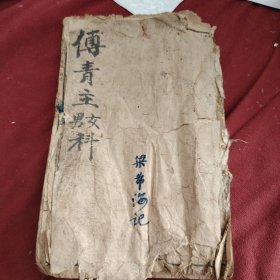 傅青主男女科
梁华海记